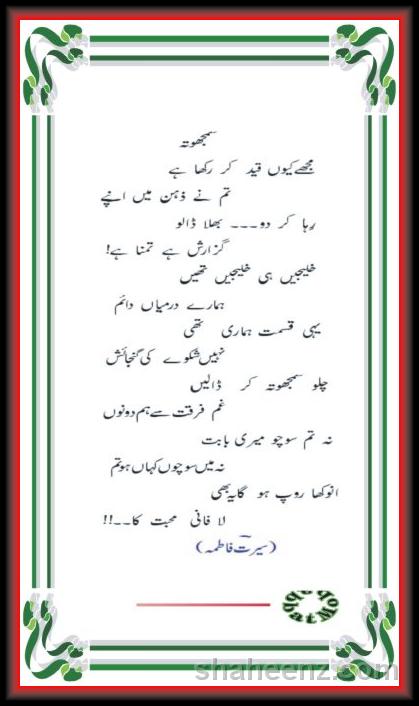 سمجھوتہ
مجھے کیوں قید کر رکھا ہے
تم نے ذہن میں اپنے
رہا کر دو۔۔۔ بھلا ڈالو
گزارش ہے تمنا ہے!
خلیجیں ہی خلیجیں تھیں
ہمارے درمیاں دائم
یہی قسمت ہماری تھی
نہیں شکوے کی گنجائش
چلو سمجھوتہ کر ڈالیں
غم فرقت سے ہم دونوں
نہ تم سوچو میری بابت
نہ میں سوچوں کہاں ہو تم
انوکھا روپ ہو گا یہ بھی
لا فانی محبت کا۔۔!!
(سیرت فاطمہ)
shaheenz.com